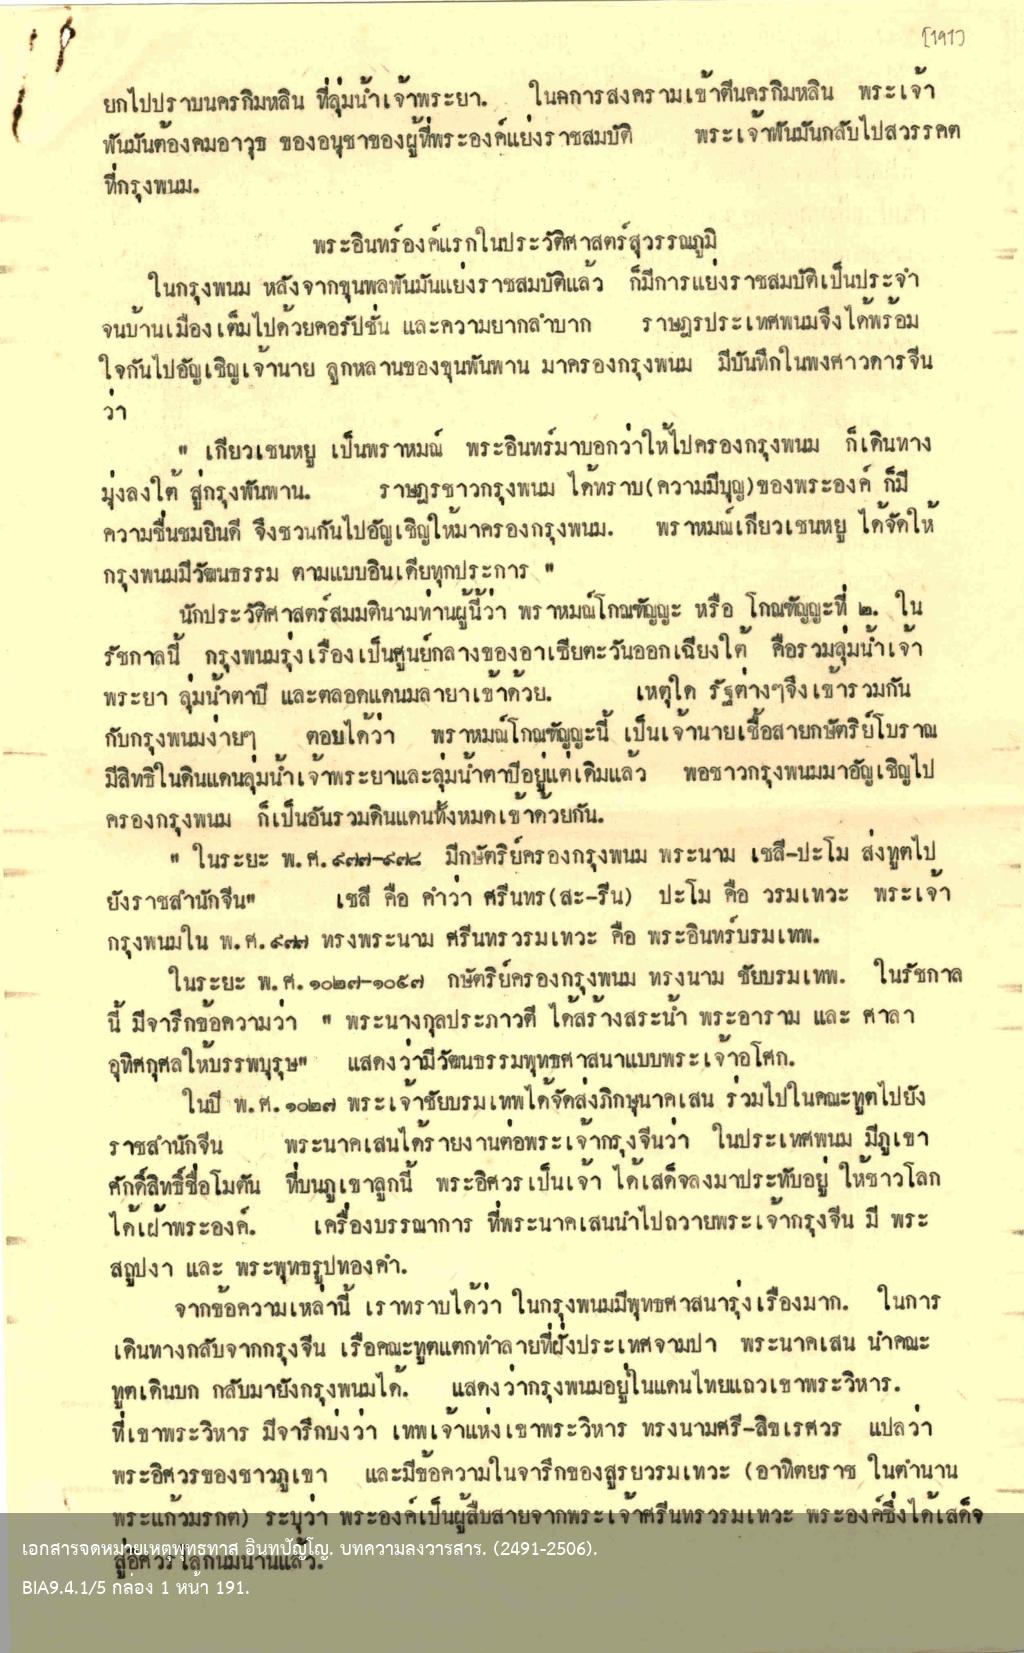 [191]
ยกไปปราบนครกิมหลิน ที่ลุ่มน้ำเจ้าพระยา. ในคการสงครามเข้าตีนครกิมหลิน พระเจ้า
พันมันต้องคมอาวุธ ของอนุชาของผู้ที่พระองค์แย่งราชสมบัติ พระเจ้าพันมันกลับไปสวรรคต
ที่กรุงพนม.
พระอินทร์องค์แรกในประวัติศาสตร์สุวรรณภูมิ
ในกรุงพนม หลังจากขุนพลพันมันแย่งราชสมบัติแล้ว ก็มีการแย่งราชสมบัติเป็นประจำ
จนบ้านเมืองเต็มไปด้วยคอรัปชั่น และความยากลำบาก ราษฎรประเทศพนมจึงได้พร้อม
ใจกันไปอัญเชิญเจ้านาย ลูกหลานของขุนพันพาน มาครองกรุงพนม มีบันทึกในพงศาวดารจีน
ว่า
" เกียวเชนหยู เป็นพราหมณ์ พระอินทร์มาบอกว่าให้ไปครองกรุงพนม ก็เดินทาง
มุ่งลงใต้ สู่กรุงพันพาน. ราษฎรชาวกรุงพนม ได้ทราบ(ความมีบุญ)ของพระองค์ ก็มี
ความชื่นชมยินดี จึงชวนกันไปอัญเชิญให้มาครองกรุงพนม. พราหมณ์เกียวเชนหยู ได้จัดให้
กรุงพนมมีวัฒนธรรม ตามแบบอินเดียทุกประการ "
นักประวัติศาสตร์สมมตินามท่านผู้นี้ว่า พราหมณ์โกณฑัญญะ หรือ โกณฑัญญะที่ ๒. ใน
รัชกาลนี้ กรุงพนมรุ่งเรืองเป็นศูนย์กลางของอาเซียตะวันออกเฉียงใต้ คือรวมลุ่มน้ำเจ้า
พระยา ลุ่มน้ำตาปี และตลอดแดนมลายาเข้าด้วย. เหตุใด รัฐต่างๆจึงเข้ารวมกัน
กับกรุงพนมง่ายๆ ตอบได้ว่า พราหมณ์โกณฑัญญะนี้ เป็นเจ้านายเชื้อสายกษัตริย์โบราณ
มีสิทธิในดินแดนลุ่มน้ำเจ้าพระยาและลุ่มน้ำตาปีอยู่แต่เดิมแล้ว พอชาวกรุงพนมมาอัญเชิญไป
ครองกรุงพนม ก็เป็นอันรวมดินแดนทั้งหมดเข้าด้วยกัน.
" ในระยะ พ.ศ.๙๗๗-๙๗๘ มีกษัตริย์ครองกรุงพนม พระนาม เชสี-ปะโม ส่งทูตไป
ยังราชสำนักจีน" เชสี คือ คำว่า ศรีนทร(สะ-รีน) ปะโม คือ วรมเทวะ พระเจ้า
กรุงพนมใน พ.ศ.๙๗๗ ทรงพระนาม ศรีนทรวรมเทวะ คือ พระอินทร์บรมเทพ.
ในระยะ พ.ศ.๑๐๒๗-๑๐๕๗ กษัตริย์ครองกรุงพนม ทรงนาม ชัยบรมเทพ. ในรัชกาล
นี้ มีจารึกข้อความว่า " พระนางกุลประภาวตี ได้สร้างสระน้ำ พระอาราม และ ศาลา
อุทิศกุศลให้บรรพบุรุษ" แสดงว่ามีวัฒนธรรมพุทธศาสนาแบบพระเจ้าอโศก.
ในปี พ.ศ.๑๐๒๗ พระเจ้าชัยบรมเทพได้จัดส่งภิกษุนาคเสน ร่วมไปในคณะทูตไปยัง
ราชสำนักจีน พระนาคเสนได้รายงานต่อพระเจ้ากรุงจีนว่า ในประเทศพนม มีภูเขา
ศักดิ์สิทธิ์ชื่อโมตัน ที่บนภูเขาลูกนี้ พระอิศวรเป็นเจ้า ได้เสด็จลงมาประทับอยู่ ให้ชาวโลก
ได้เฝ้าพระองค์. เครื่องบรรณาการ ที่พระนาคเสนนำไปถวายพระเจ้ากรุงจีน มี พระ
สถูปงา และ พระพุทธรูปทองคำ.
จากข้อความเหล่านี้ เราทราบได้ว่า ในกรุงพนมมีพุทธศาสนารุ่งเรืองมาก. ในการ
เดินทางกลับจากกรุงจีน เรือคณะทูตแตกทำลายที่ฝั่งประเทศจามปา พระนาคเสน นำคณะ
ทูตเดินบก กลับมายังกรุงพนมได้. แสดงว่ากรุงพนมอยู่ในแดนไทยแถวเขาพระวิหาร.
ที่เขาพระวิหาร มีจารึกบ่งว่า เทพเจ้าแห่งเขาพระวิหาร ทรงนามศรี-สิขเรศวร แปลว่า
พระอิศวรของชาวภูเขา และมีข้อความในจารึกของสูรยวรมเทวะ (อาทิตยราช ในตำนาน
พระแก้วมรกต) ระบุว่า พระองค์เป็นผู้สืบสายจากพระเจ้าศรีนทรวรมเทวะ พระองค์ซึ่งได้เสด็จ
สู่อิศวรโลกนมนานแล้ว.
เอกสารจดหมายเหตุพุทธทาส อินทปัญโญ. บทความลงวารสาร. (2491-2506).
BIA9.4.1/5 กล่อง 1 หน้า 191.